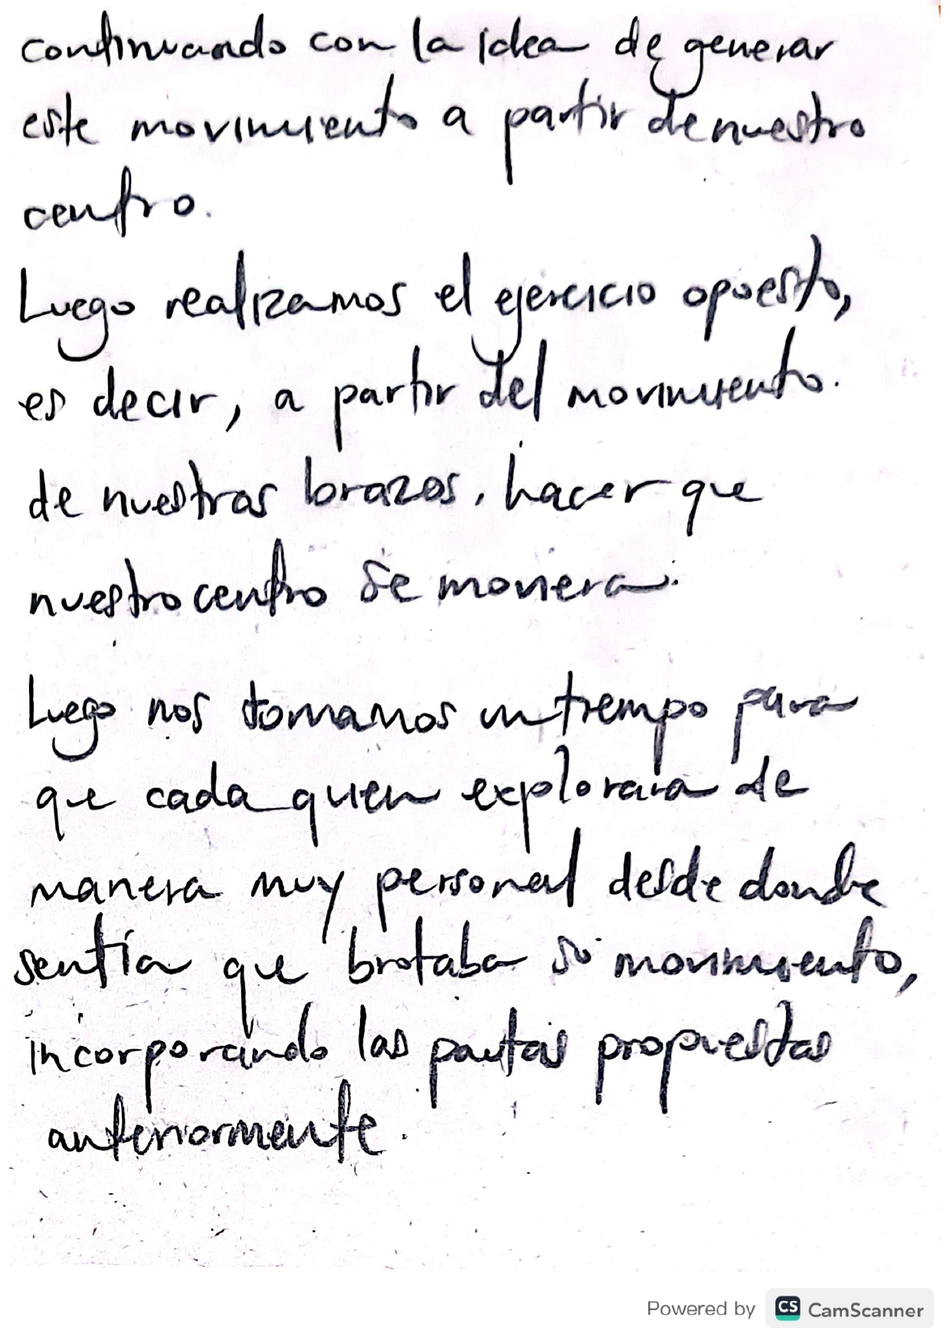 continuando con la idea de generar
este movimiento a partir de nuestro
centro.
Luego realizamos el ejercicio opuesto,
es decir, a partir del movimiento.
de nuestras brazos, hacer que
nuestro centro se moviera.
Luego nos tomamos un tiempo para
que cada quien explorara de
manera muy personal desde donde
sentía que brotaba su movimiento,
incorporando las pautas propuestas
anteriormente.
Powered by CS CamScanner